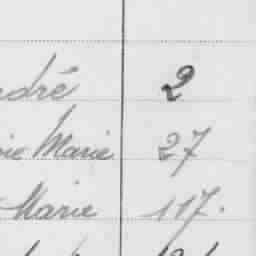 ndré 2
Marie 27
Marie 117.